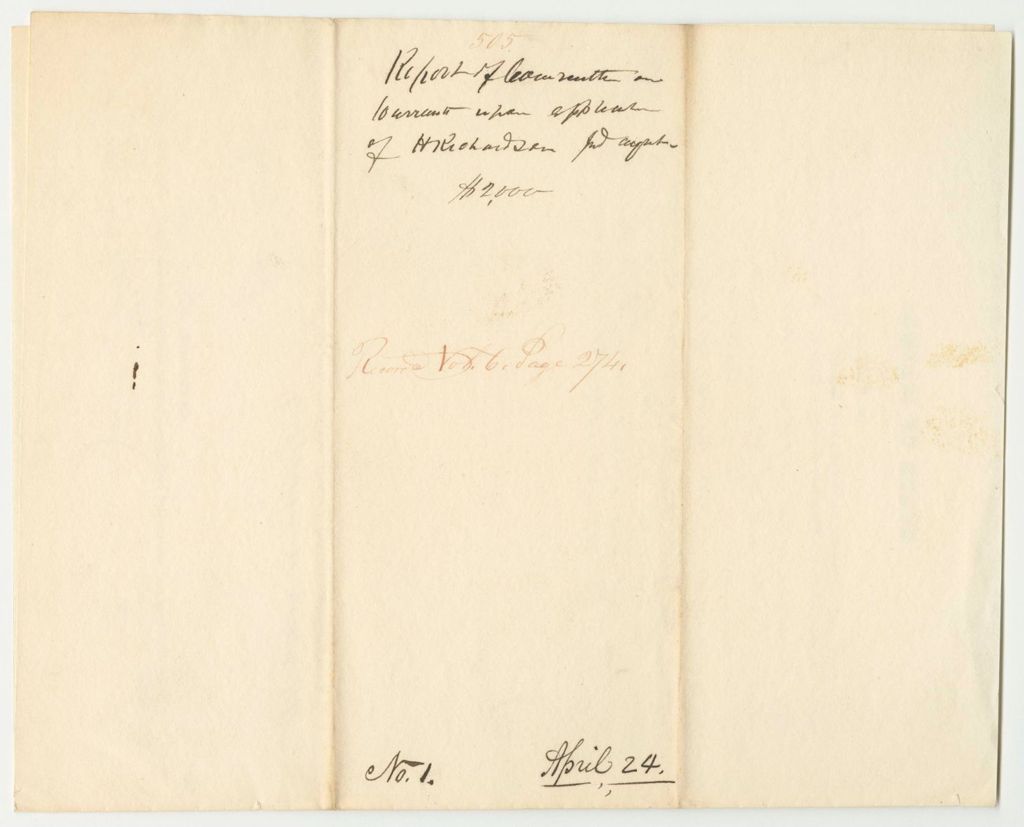 505.
Report of Committee on
Warrants upon application
of H Richardson Ind agent
$2,000
Record Vol. 6. Page 274.
No. 1.
April, 24.